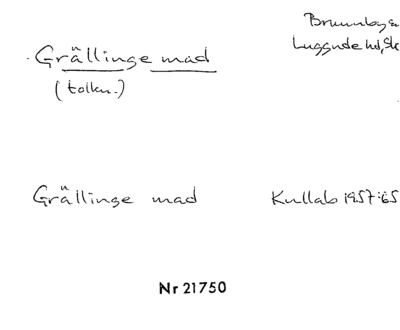 Brunnby s
Grällinge mad
Luggude hd, Sk
(tolkn.)
Grällinge mad Kullab 1957:65
Nr 21750